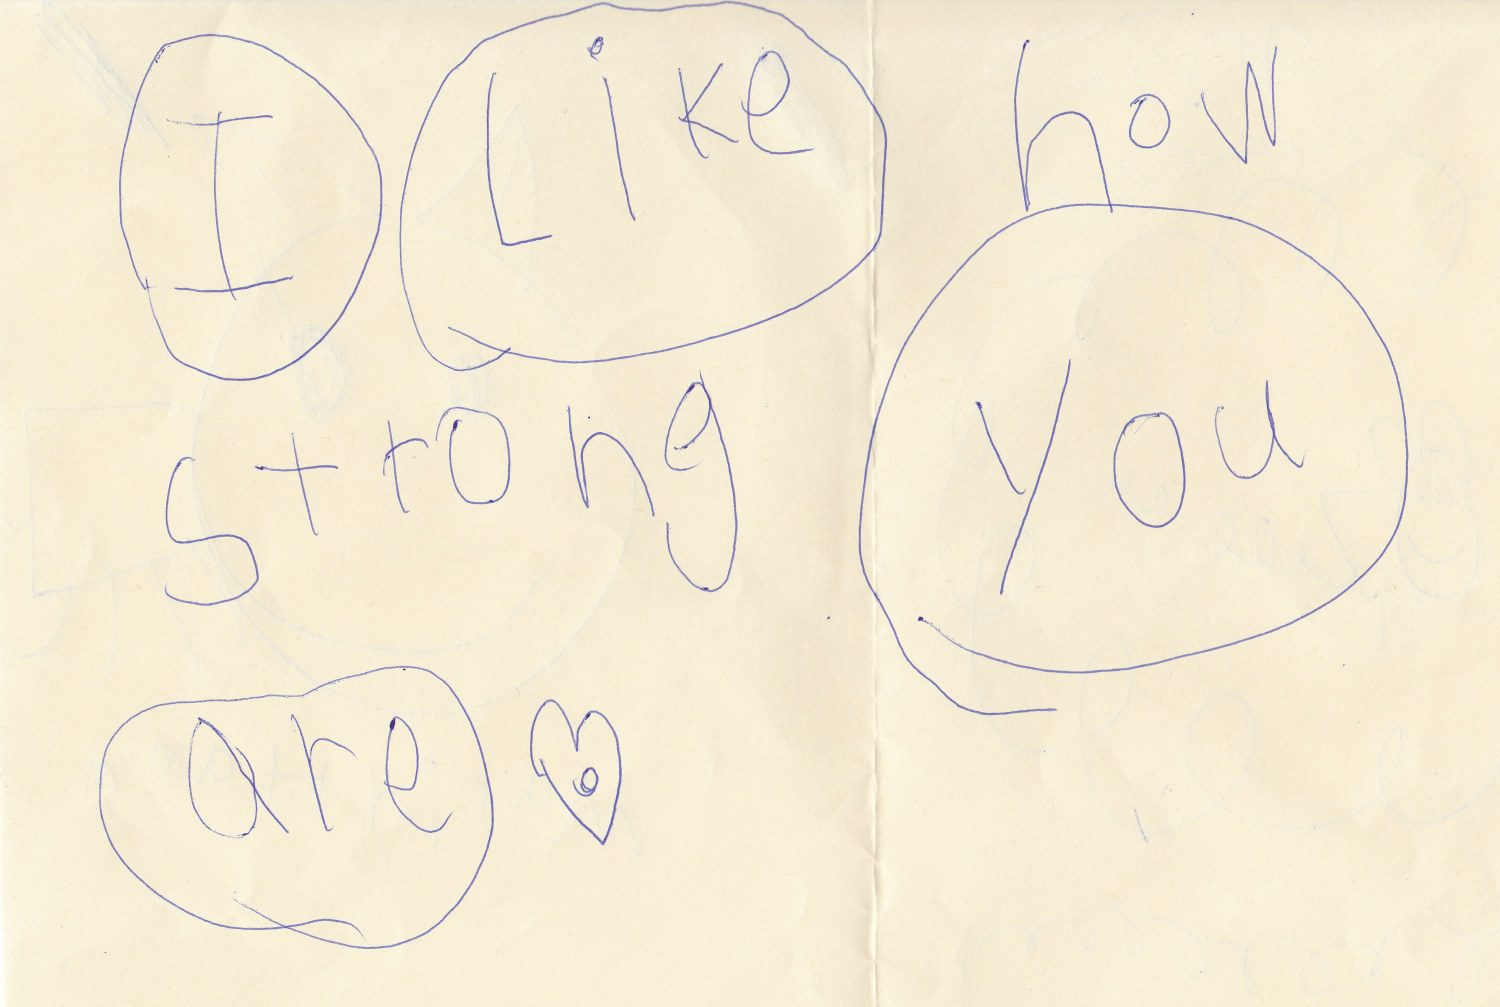 I Like how
strong you
are